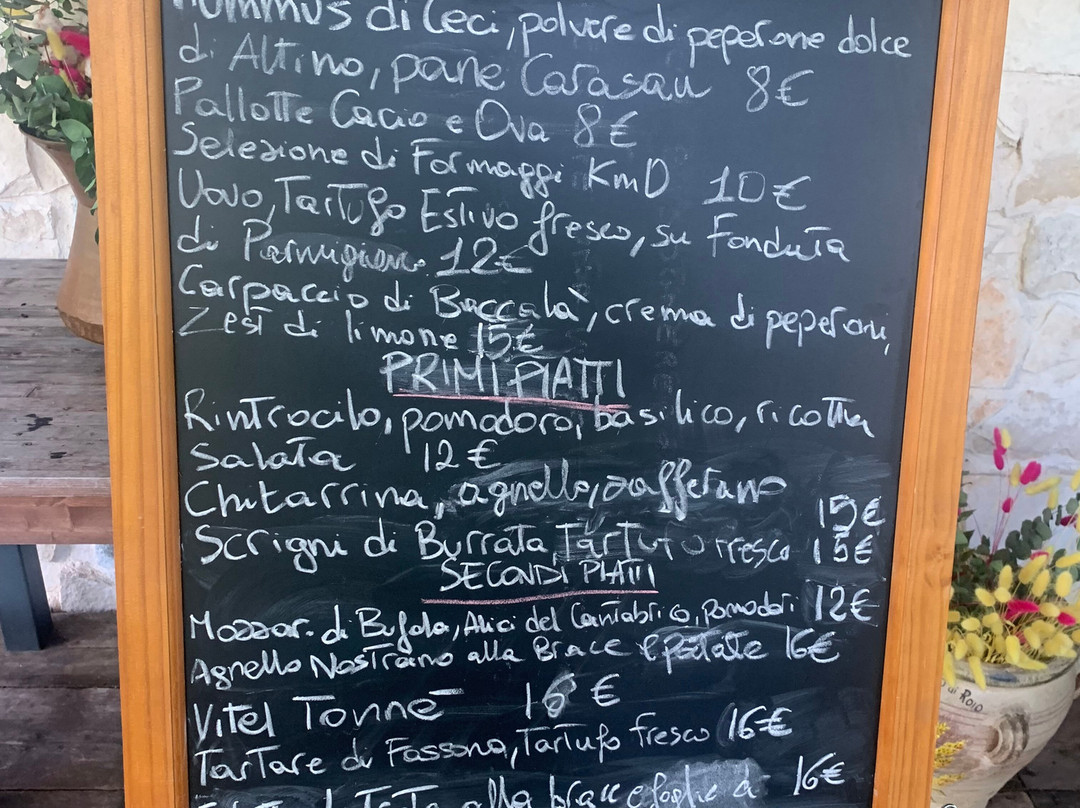 Hummus di Ceci, polvere di peperone dolce
di Altino, pane Carasau 8€
Pallotte Cacio e Ova 8€
Selezione di Formaggi Km0 10€
Uovo, Tartufo Estivo fresco, su Fonduta
di Parmigiano 12€
Carpaccio di Baccalà, crema di peperoni,
Zest di limone 15€
PRIMI PIATTI
Rintrocilo, pomodoro, basilico, ricotta
Salata 12€
Chitarrina, agnello, zafferano 15€
Scrigni di Burrata Tartufo fresco 15€
SECONDI PIATTI
Mozzar. di Bufala, Alici del Cantabrico, pomodori 12€
Agnello Nostrano alla Brace e patate 16€
Vitel Tonné 16 €
Tartare di Fassona, Tartufo fresco 16€
alla brace e foglie di 16€